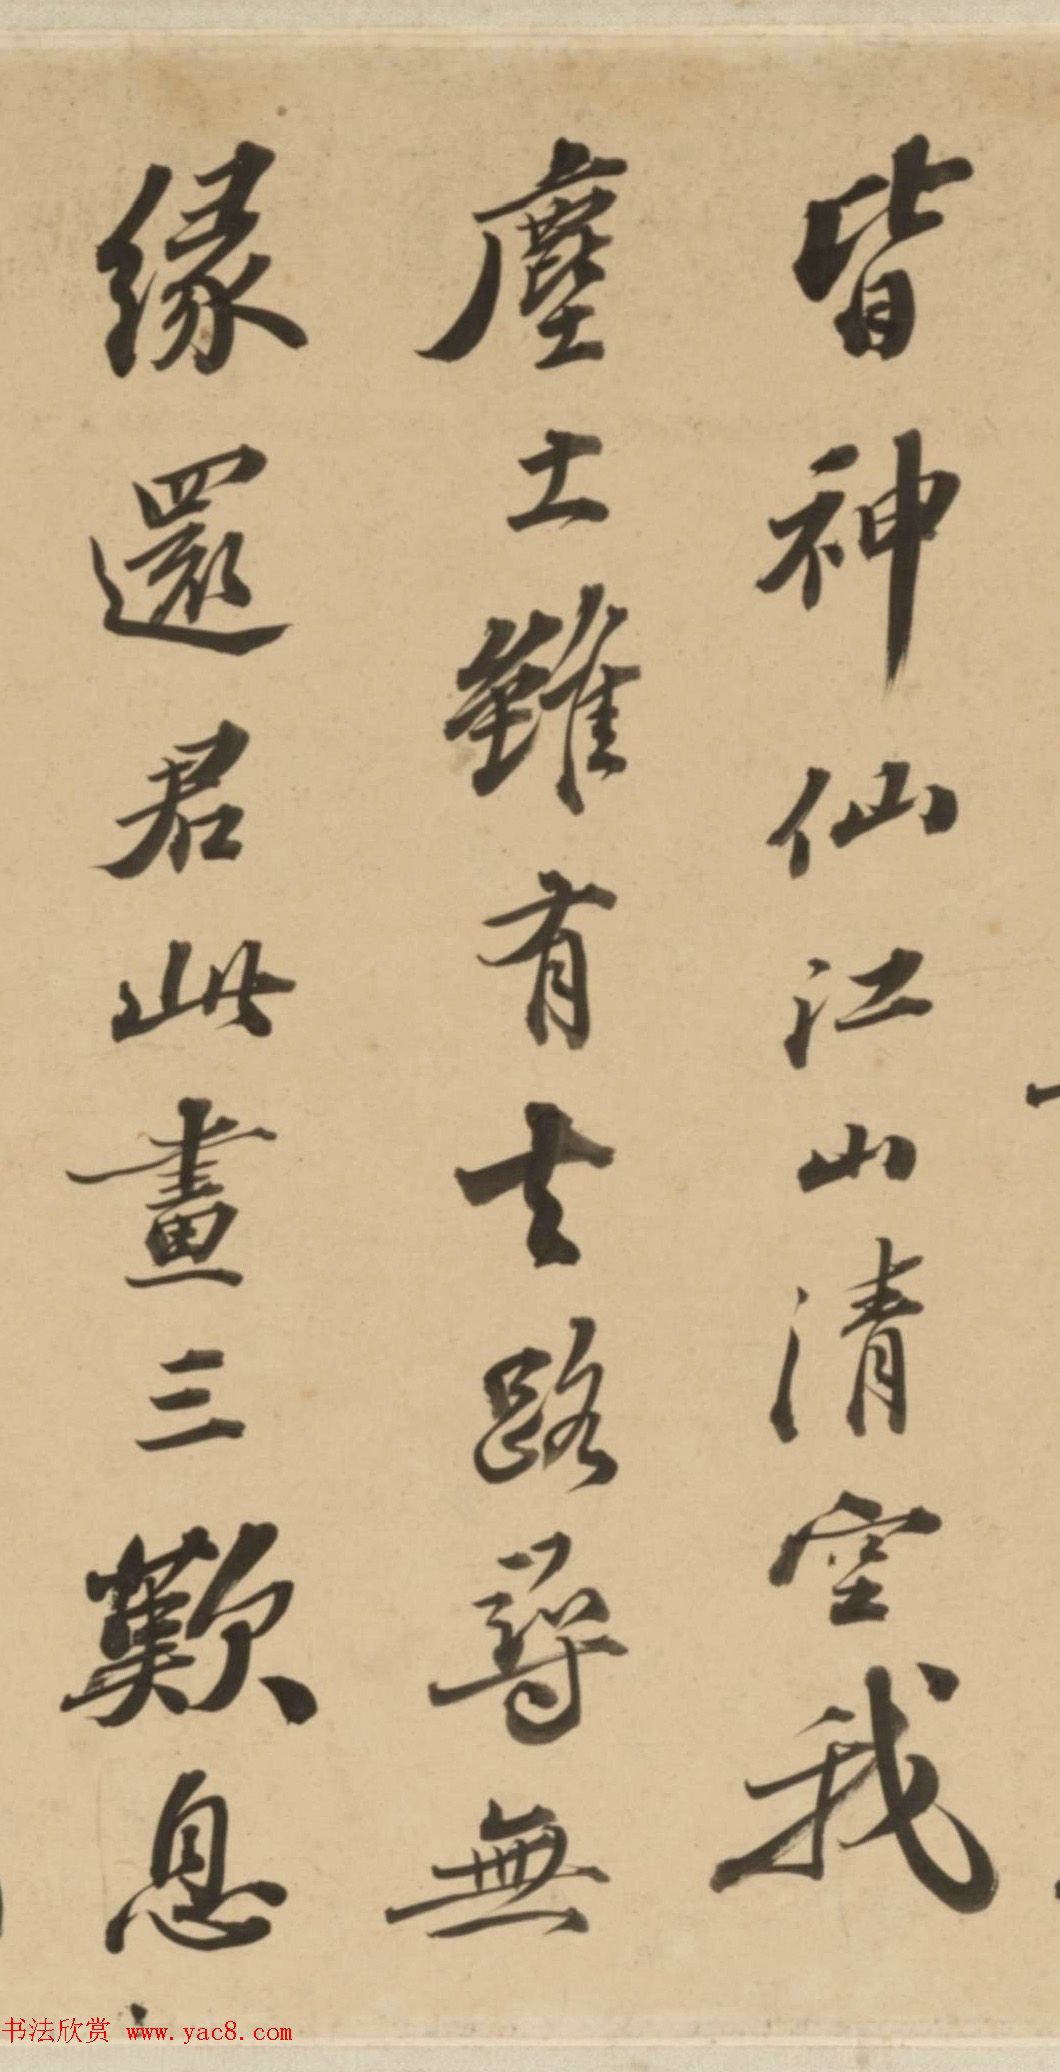 皆神仙江山清空我
塵土雖有去路尋無
緣還君此畫三歎息
书法欣赏 www.yac8.com